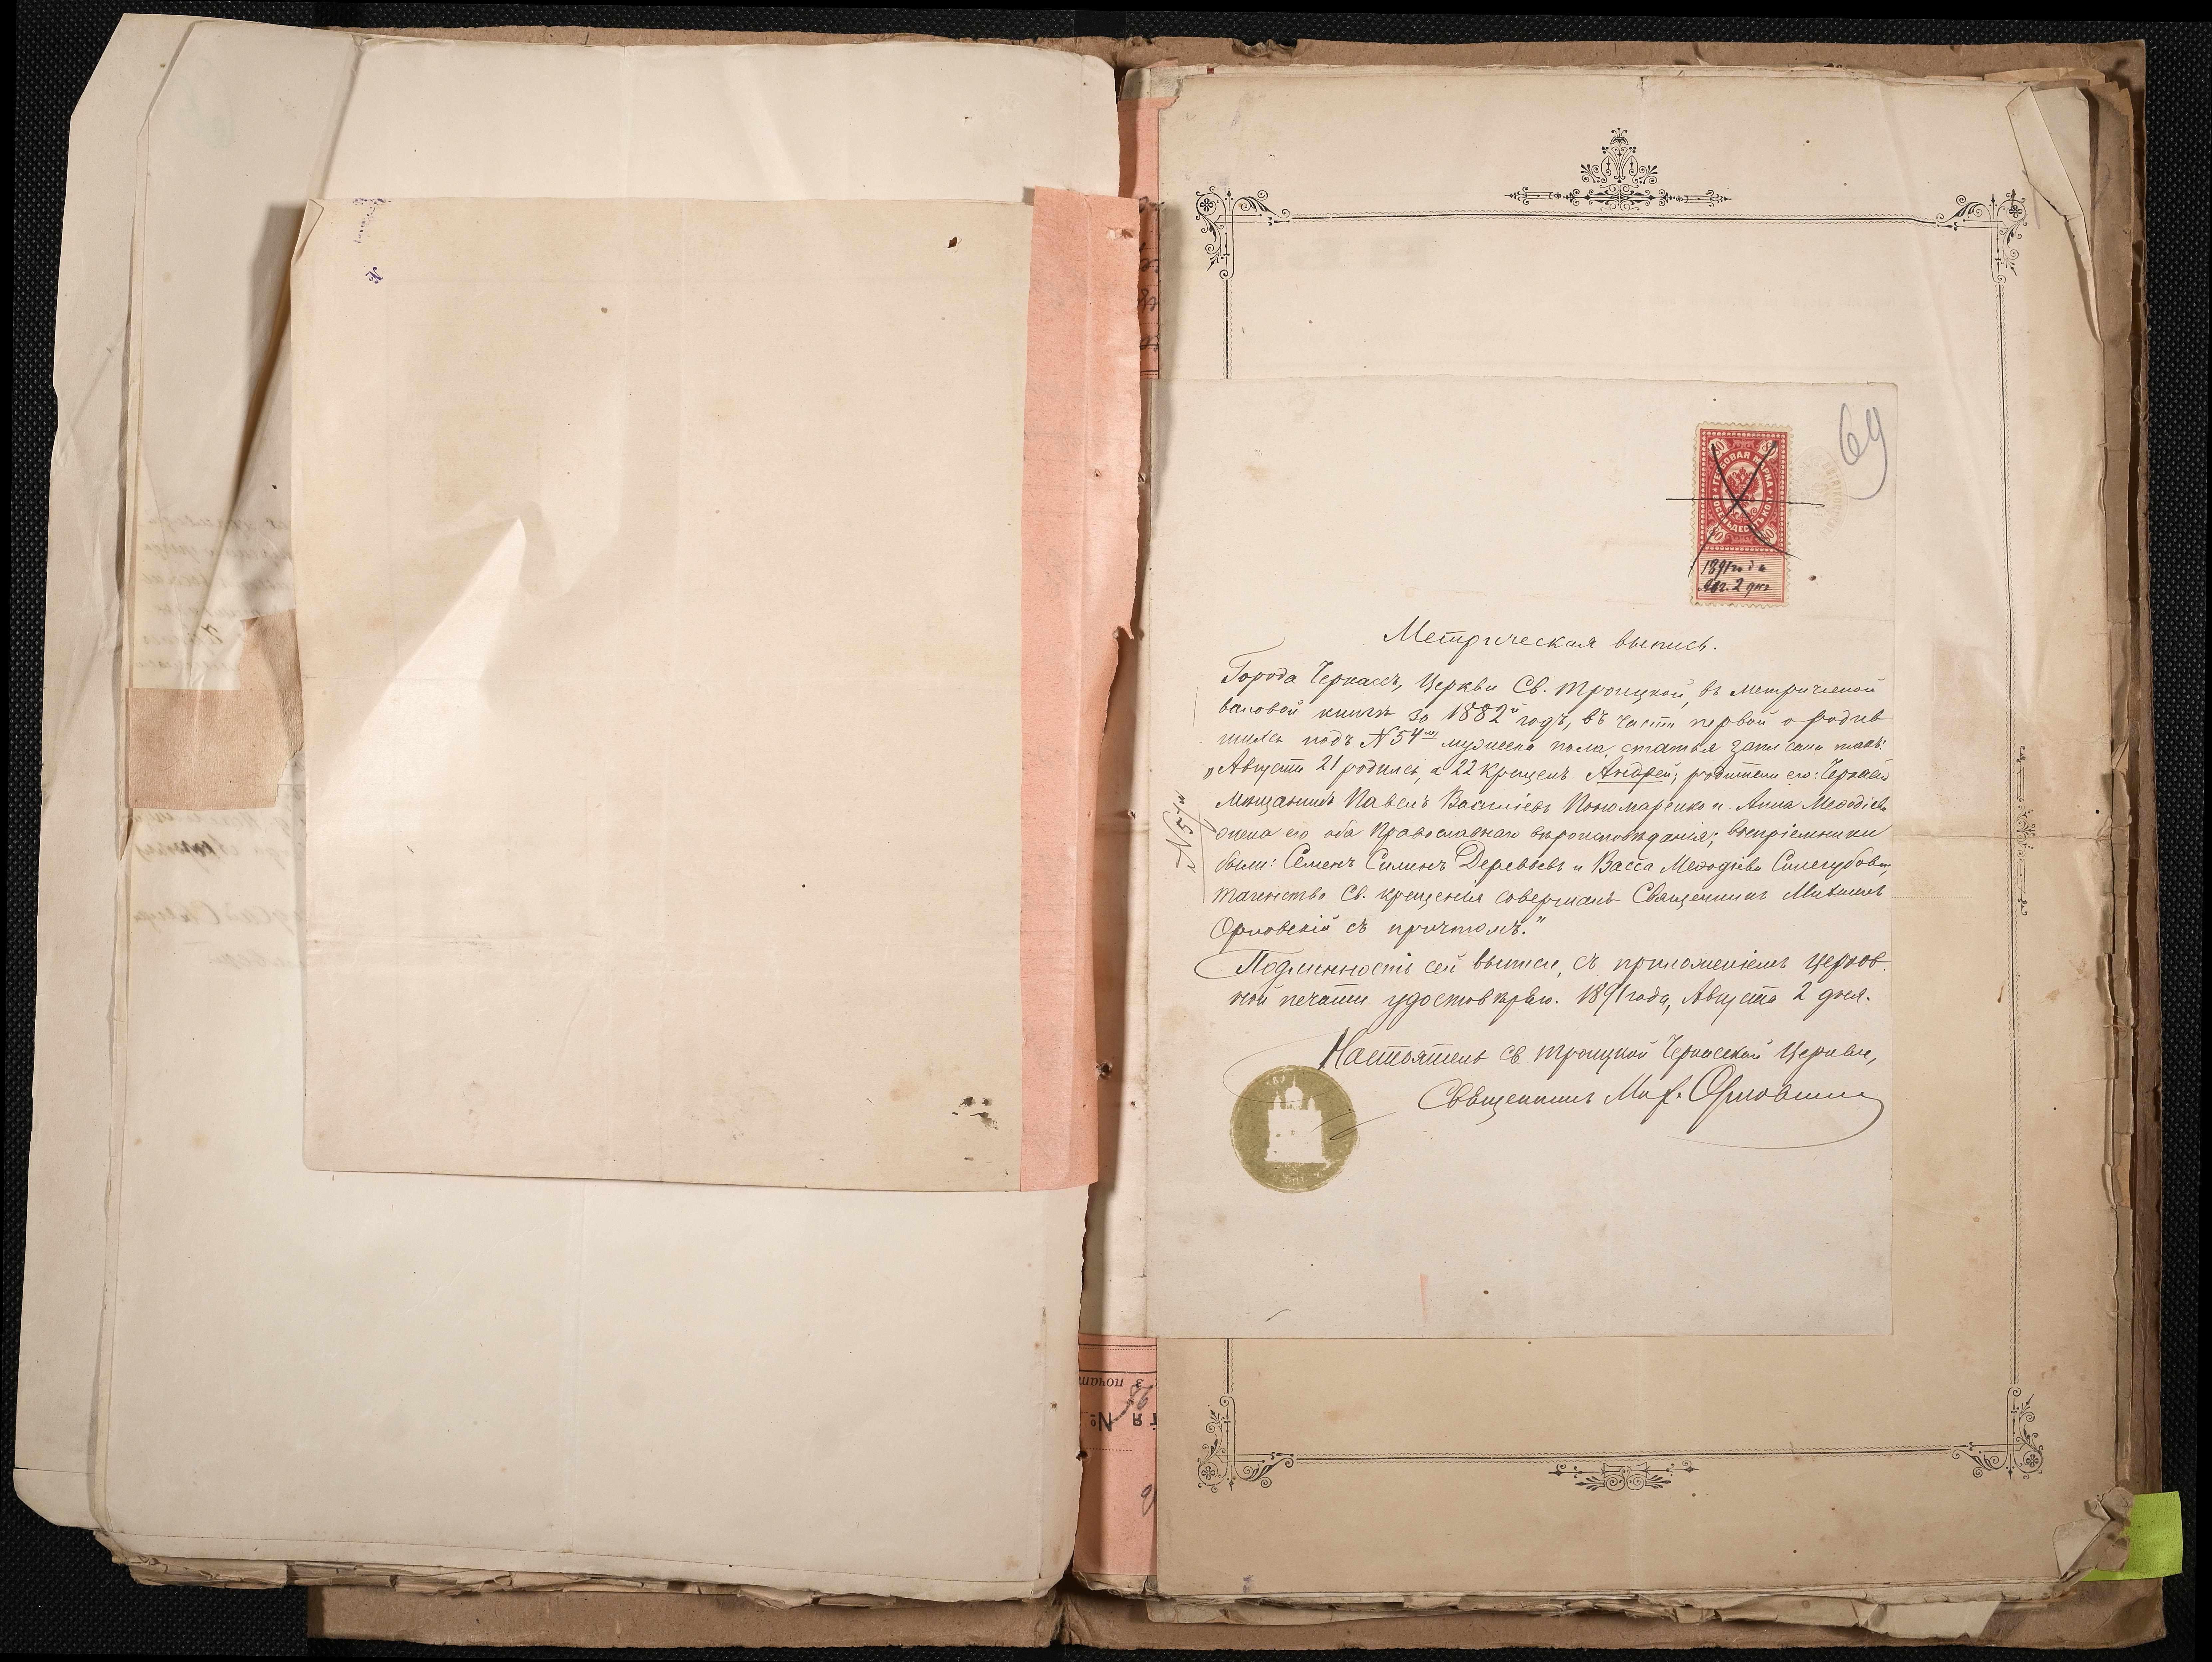 69
ГЕРБОВАЯ МАРКА
ВОСЕМЬДЕСЯТЪ КОП.
80 80
80 80
1891 года
Авг. 2 дня
Метрическая выпись.
Города Черкассъ, Церкви Св. Троицкой, въ метрической
валовой книгѣ за 1882й годъ, въ части первой о родив
шихся подъ N 54му мужеска пола, статья записана такъ:
„Августа 21 родился, а 22 крещенъ Андрей; родители его: Черкасскій
Мещанинъ Павелъ Василіевъ Пономаренко и Анна Меѳодіева
жена его оба Православнаго вѣроисповѣданія; воспріемники
были: Семенъ Силинъ Деревьевъ и Васса Меѳодіева Синегубова,
таинство Св. крещенія совершалъ Священникъ Михаилъ
Орловскій съ причтомъ."
N 54
Подлинность сей выписи, съ приложеніемъ церков
ной печати удостовѣряю. 1891 года, Августа 2 дня.
Настоятель Св Троицкой Черкасской Церкви,
Священникъ Мих. Орловскій
з почат
№ 86
№